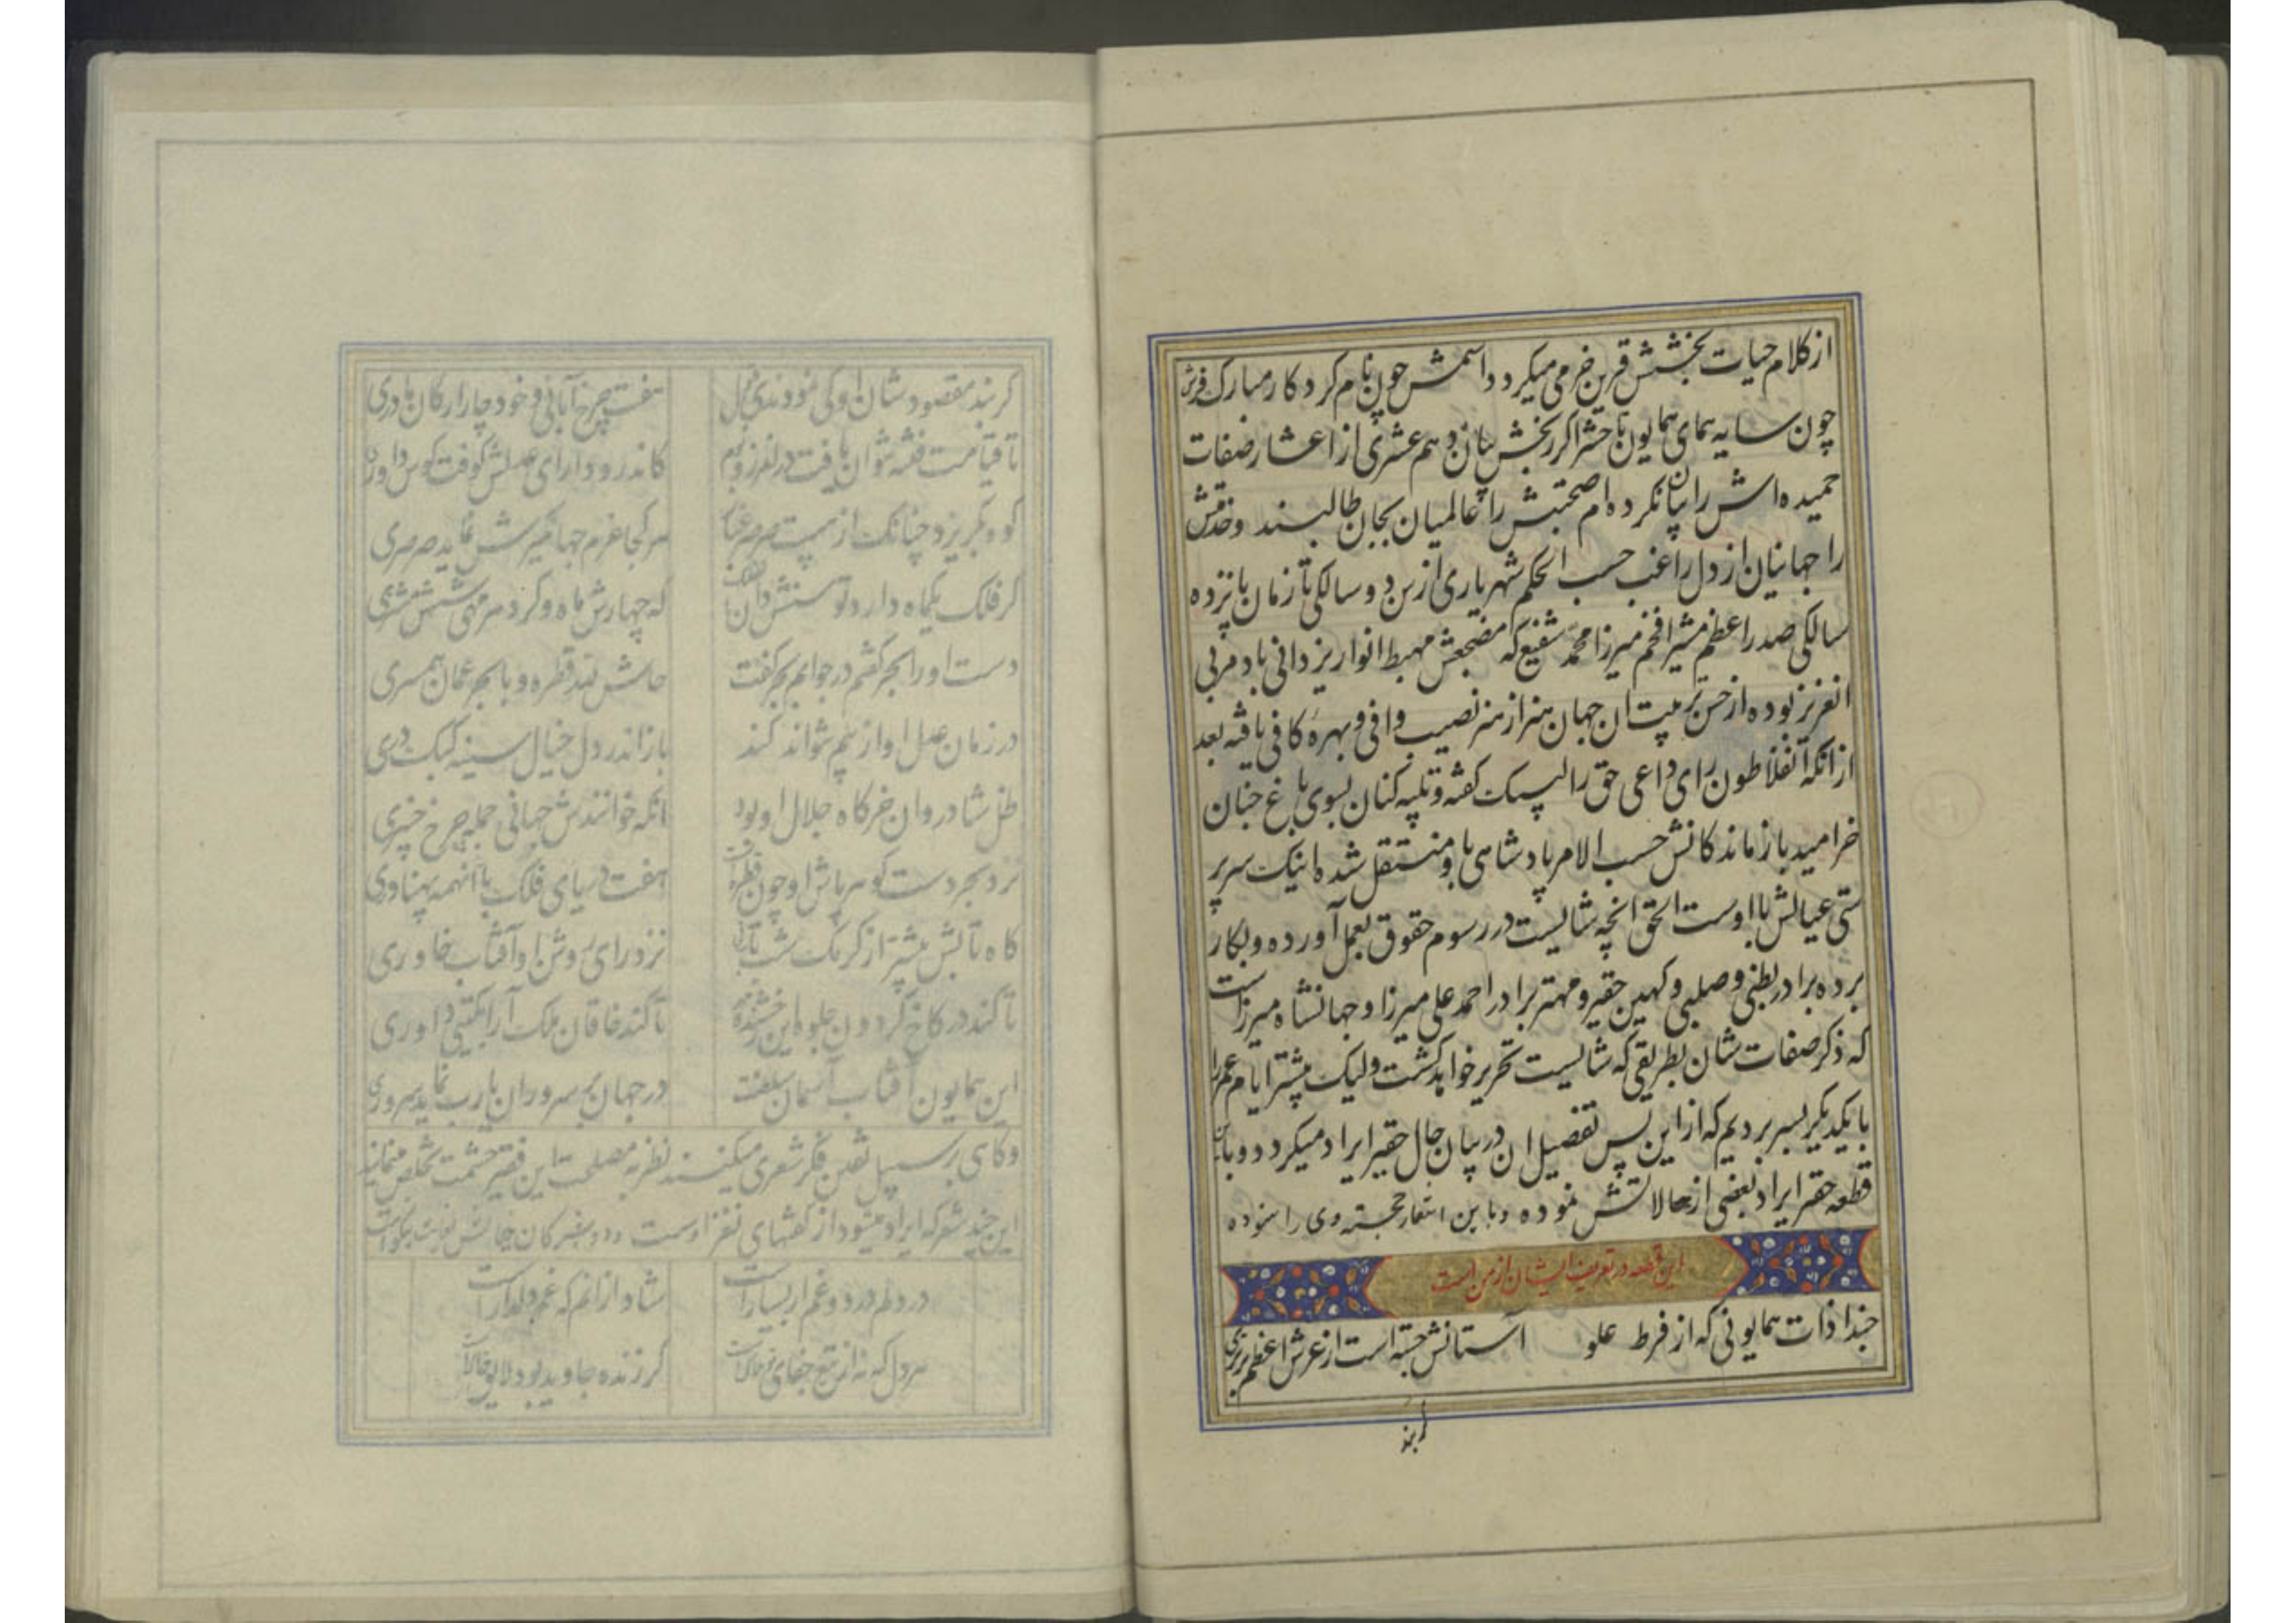 از کلام حیات بخشش قرین خرمی میکردد اسمش چون نام کردکار مبارک فرش
چون سایه همای همایون تا حشر اکر بخش بیان دهم عشری از اعشار صفات
حمیده اش را بیان نکرده ام صحبتش را عالمیان بجان طالبند و خدمتش
را جهانیان از دل راغب حسب الحکم شهریاری از سن دو سالکی تا زمان پانزده
سالکی صدر اعظم مشیر افخم میرزا محمد شفیع که مضجعش مهبط انوار یزدانی باد مربی
انعزیز بوده از حسن تربیت ان جهان هنر از هنر نصیب وافی و بهره کافی یافته بعد
از انکه انفلاطون رای داعی حق را لبیک کفته و تلبیه کنان بسوی باغ جنان
خرامید بازماندکانش حسب الامر پادشاهی باو منتقل شده اینک سرپر
ستی عیالش با اوست الحق انچه شایست در رسوم حقوق بعمل آورده و بکار
برده برادر بطنی و صلبی و کهین حقیر و مهتر برادر احمد علی میرزا و جهانشاه میرزاست
که ذکر صفات شان بطریقی که شایست تحریر خواهد کشت ولیک بیشتر ایام عمر را
با یکدیکر بسر بردیم که از این پس تفصیل ان در بیان حال حقیر ایراد میکردد و باین
قطعه حقیر ایراد بعضی از حالاتش نموده و با این اشعار خجسته وی را ستوده
این قطعه در تعریف ایشان از من است
حبذا ذات همایونی که از فرط علو آستانش جسته است از عرش اعظم برتری
کر بند
کر نبد مقصود شان او کی نمودندی قبول هفت چرخ آبائی و خود چار ارکان مادری
تا قیامت فتنه نتوان یافت در کاندر و دارای عدلش کوفت کوس داوری
کو و بکریزد چنانک از هیبت صرصر غبار هر کجا عزم جهانکیرش نماید صرصری
کر فلک یکماه دارد توسنش دان که چهارش ماه و کرد هر مهی شش مشتری
دست او را بحر کفتم در جوابم بحر کفت حاش لله قطره و با بحر عمان همسری
در زمان عدل او از بیم نتواند کند باز اندر دل خیال سینه کبک دری
ظل شادروان خرکاه جلال او بود انکه خوانندش جهانی جمله چرخ چنبری
نزد بحر دست کوهر پاش او چون قطره هفت دریای فلک با آنهمه پهناوری
کاه تابش بیشتر از کرمک شب تاب نی نزد رای روشن او آفتاب خاوری
تا کند در کاخ کردون جلوه این رخشنده تا کند خاقان ملک آرا بکیتی داوری
این همایون آفتاب آسمان سلطنت در جهان بر سروران یا رب نماید سروری
وکاهی بر سبیل تفنن فکر شعری میکنند نظر به مصلحت این فقیر حشمت تخلص مینمایند
این چند شعر که ایراد میشود از کفتهای نغز اوست
در دلم درد و غم ار بسیار است شاد از انم که غم دلدار است
هر دل که نه از تیغ جفای تو هلاک است کر زنده جاوید بود لایق خاک است